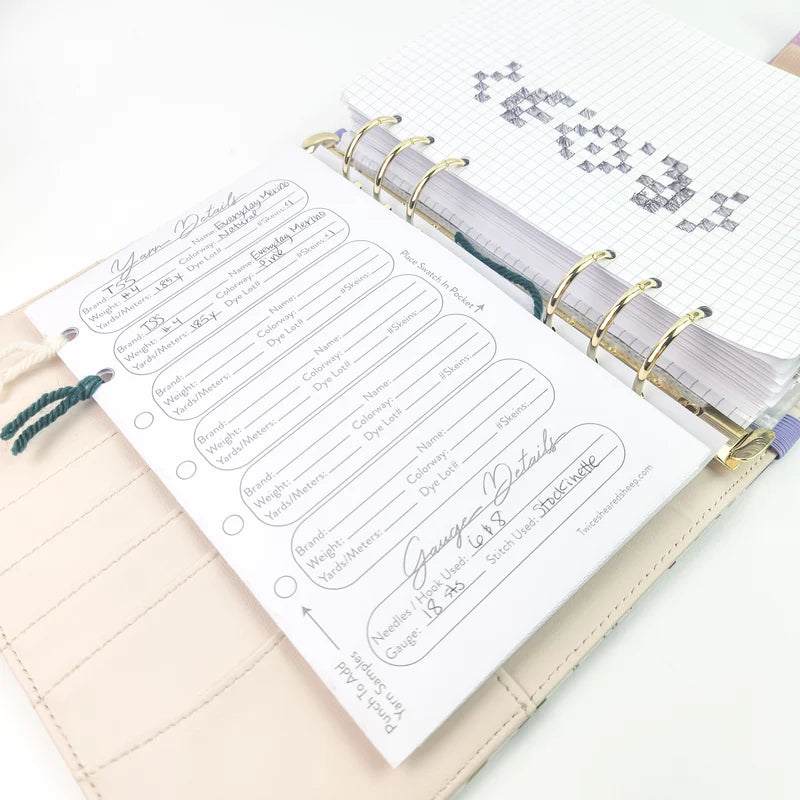 Yarn Details
Brand: TSS Name: Everyday Merino
Weight: #4 Colorway: Natural
Yards/Meters: 185y Dye Lot# #Skeins: <1
Brand: TSS Name: Everyday Merino
Weight: #4 Colorway: Pine
Yards/Meters: 185y Dye Lot# #Skeins: <1
Brand: Name:
Weight: Colorway:
Yards/Meters: Dye Lot# #Skeins:
Brand: Name:
Weight: Colorway:
Yards/Meters: Dye Lot# #Skeins:
Brand: Name:
Weight: Colorway:
Yards/Meters: Dye Lot# #Skeins:
Place Swatch In Pocket
Gauge Details
Needles / Hook Used: 6 & 8
Gauge: 18 sts Stitch Used: Stockinette
Twiceshearedsheep.com
Punch To Add
Yarn Samples